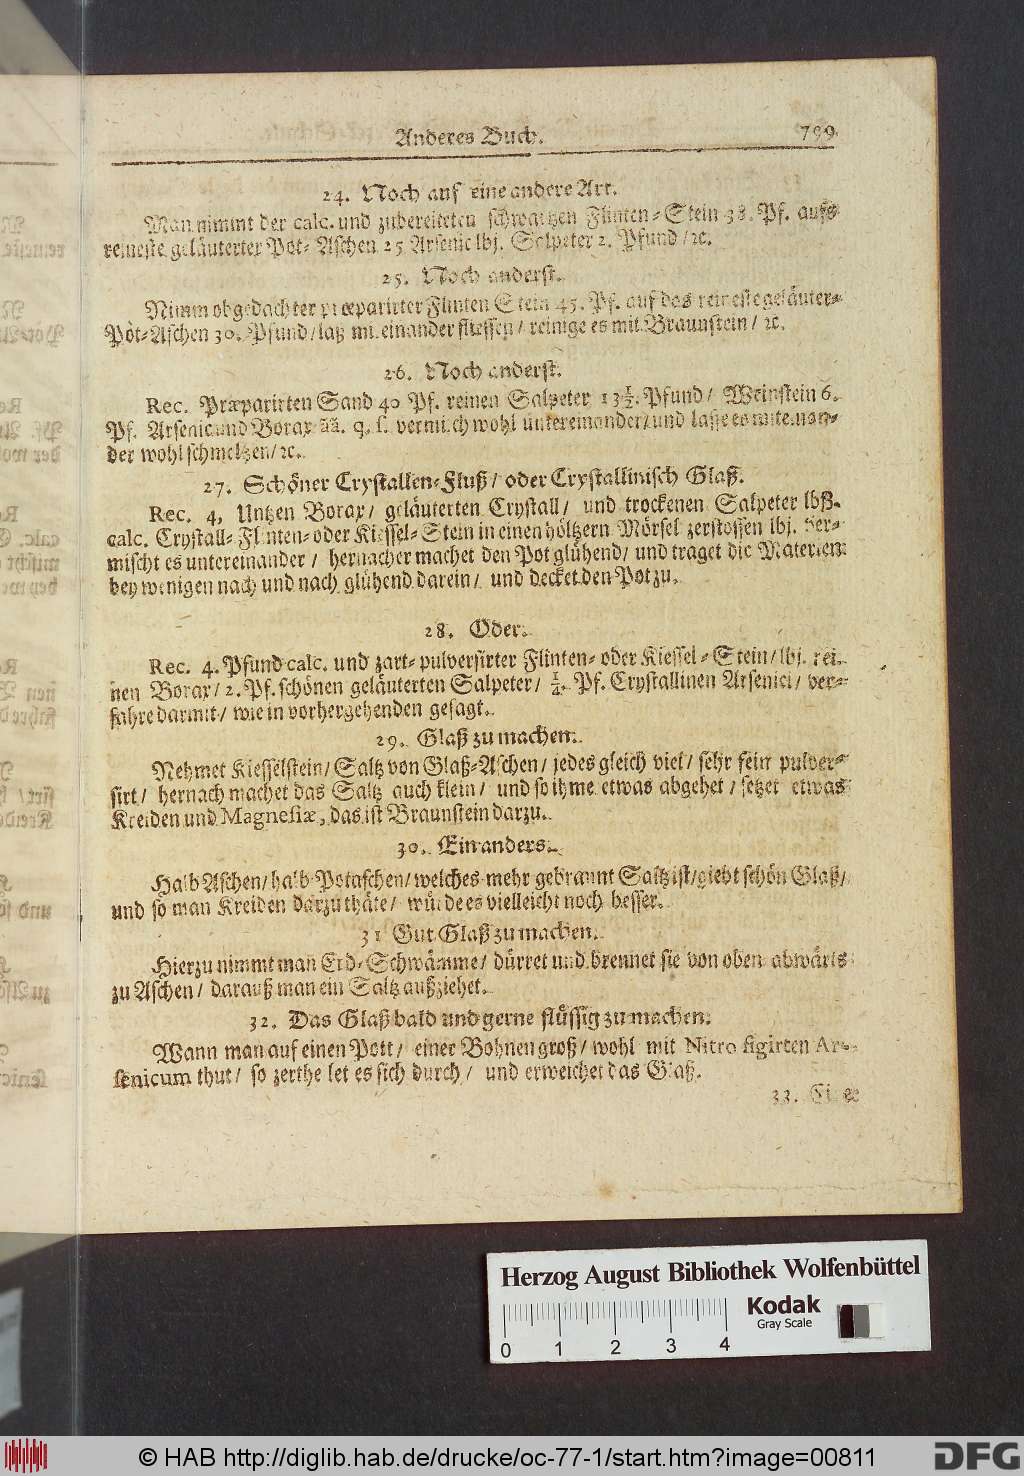 Anderes Buch. 799
24. Noch auf eine andere Art.
Man nimmt der calc. und zubereiteten schwartzen Flinten-Stein 38. Pf. auffs
reineste geläuterter Pot-Aschen 25 Arsenic lbj. Salpeter 2. Pfund/ ꝛc.
25. Noch anderst.
Nimm obgedachter præparirter Flinten Stein 45. Pf. auf das reineste geläuter-
Pot-Aschen 30. Pfund/ laß mit einander fliessen/ reinige es mit Braunstein/ ꝛc.
26. Noch anderst.
Rec. Præparirten Sand 40 Pf. reinen Salpeter 13½. Pfund/ Weinstein 6.
Pf. Arsenic und Borax āā. q. s. vermisch wohl untereinander/ und lasse es miteinan-
der wohl schmeltzen/ ꝛc.
27. Schöner Crystallen-Fluß/ oder Crystallinisch Glaß.
Rec. 4, Untzen Borax/ geläuterten Crystall/ und trockenen Salpeter lbß.
calc. Crystall- Flinten- oder Kiessel-Stein in einen höltzern Mörsel zerstossen lbj. ver-
mischt es untereinander/ hernacher machet den Pot glühend/ und traget die Materien
bey wenigen nach und nach glühend darein/ und decket den Pot zu.
28. Oder.
Rec. 4. Pfund calc. und zart-pulversirter Flinten- oder Kiessel-Stein/ lbj. rei-
nen Borax/ 2. Pf. schönen geläuterten Salpeter/ Pf. Crystallinen Arsenici/ ver-
fahre darmit/ wie in vorhergehenden gesagt.
29. Glaß zu machen.
Nehmet Kiesselstein/ Saltz von Glaß-Aschen/ jedes gleich viel/ sehr fein pulver-
sirt/ hernach machet das Saltz auch klein/ und so ihme etwas abgehet/ setzet etwas
Kreiden und Magnesiæ, das ist Braunstein darzu.
30. Ein anders.
Halb Aschen/ halb Potaschen/ welches mehr gebrannt Saltz ist/ giebt schön Glaß/
und so man Kreiden darzu thäte/ würde es vielleicht noch besser.
31 Gut Glaß zu machen.
Hierzu nimmt man Erd-Schwämme/ dürret und brennet sie von oben abwärts
zu Aschen/ darauß man ein Saltz außziehet.
32. Das Glaß bald und gerne flüssig zu machen.
Wann man auf einen Pott/ einer Bohnen groß/ wohl mit Nitro figirten Ar-
senicum thut/ so zertheilet es sich durch/ und erweichet das Glaß.
33. Eine
Herzog August Bibliothek Wolfenbüttel
Kodak
Gray Scale
0 1 2 3 4
© HAB http://diglib.hab.de/drucke/oc-77-1/start.htm?image=00811
DFG